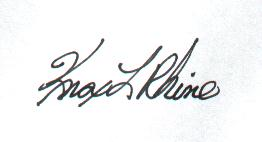 Knox L Rhine